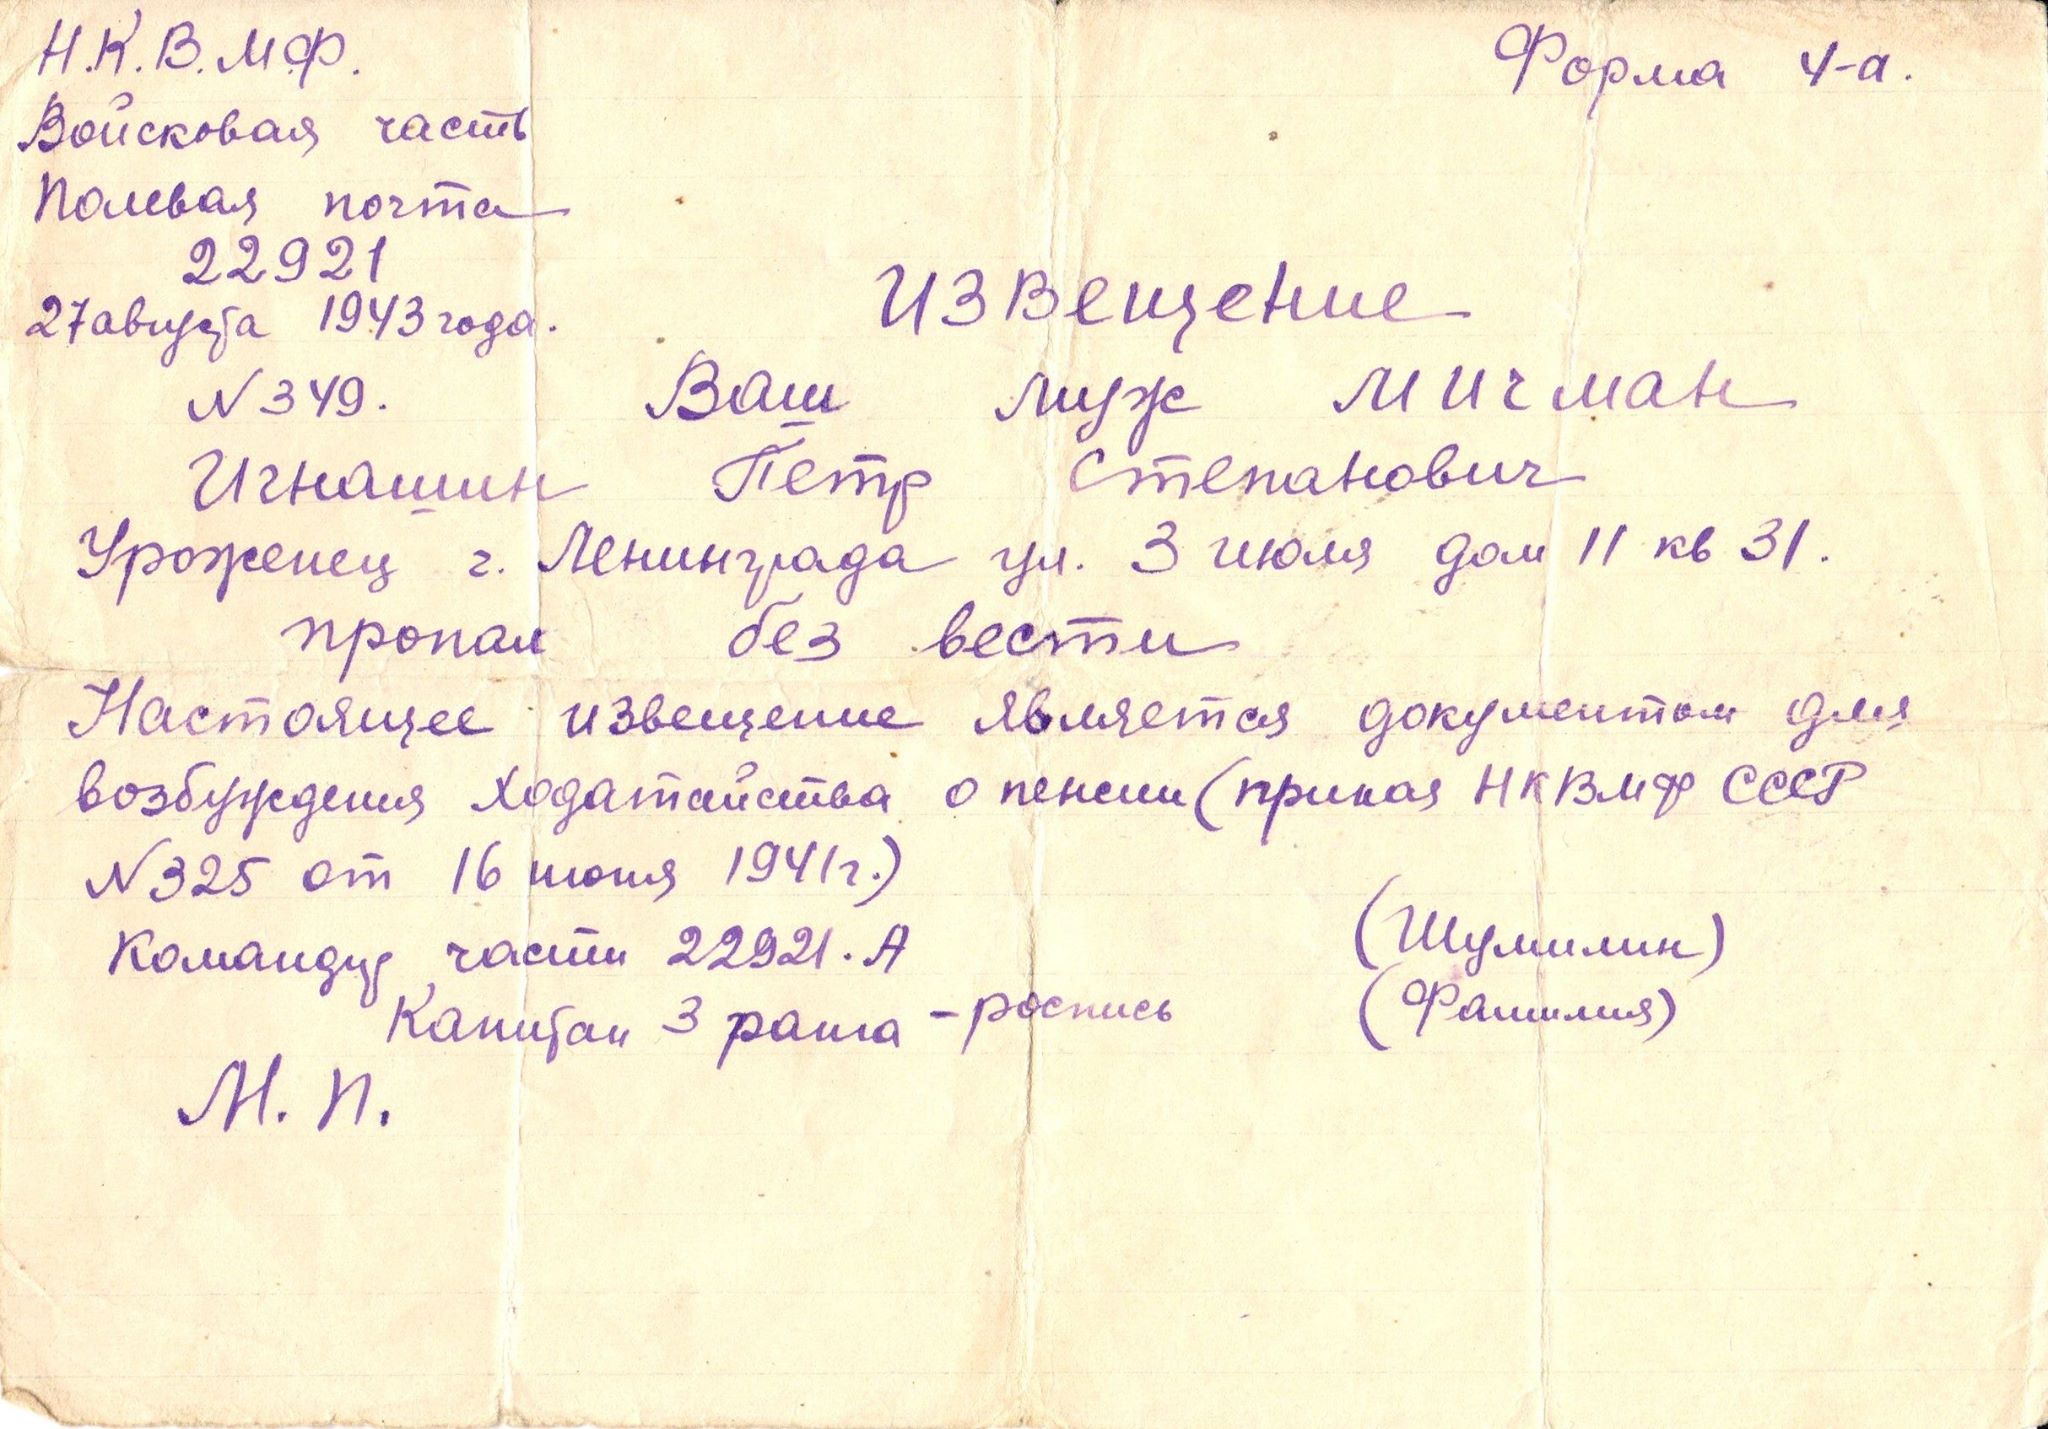 Н.К.В.М.Ф.
Форма 4-а.
Войсковая часть
Полевая почта
22921
27 августа 1943 года.
Извещение
N 349.
Ваш муж мичман
Игнашин Пётр Степанович
Уроженец г. Ленинграда ул. 3 июля дом 11 кв 31.
пропал без вести
Настоящее извещение является документом для
возбуждения ходатайства о пенсии (приказ НКВМФ СССР
N 325 от 16 июня 1941г.)
Командир части 22921.А
(Шумилин)
Капитан 3 ранга - роспись
(Фамилия)
М.П.